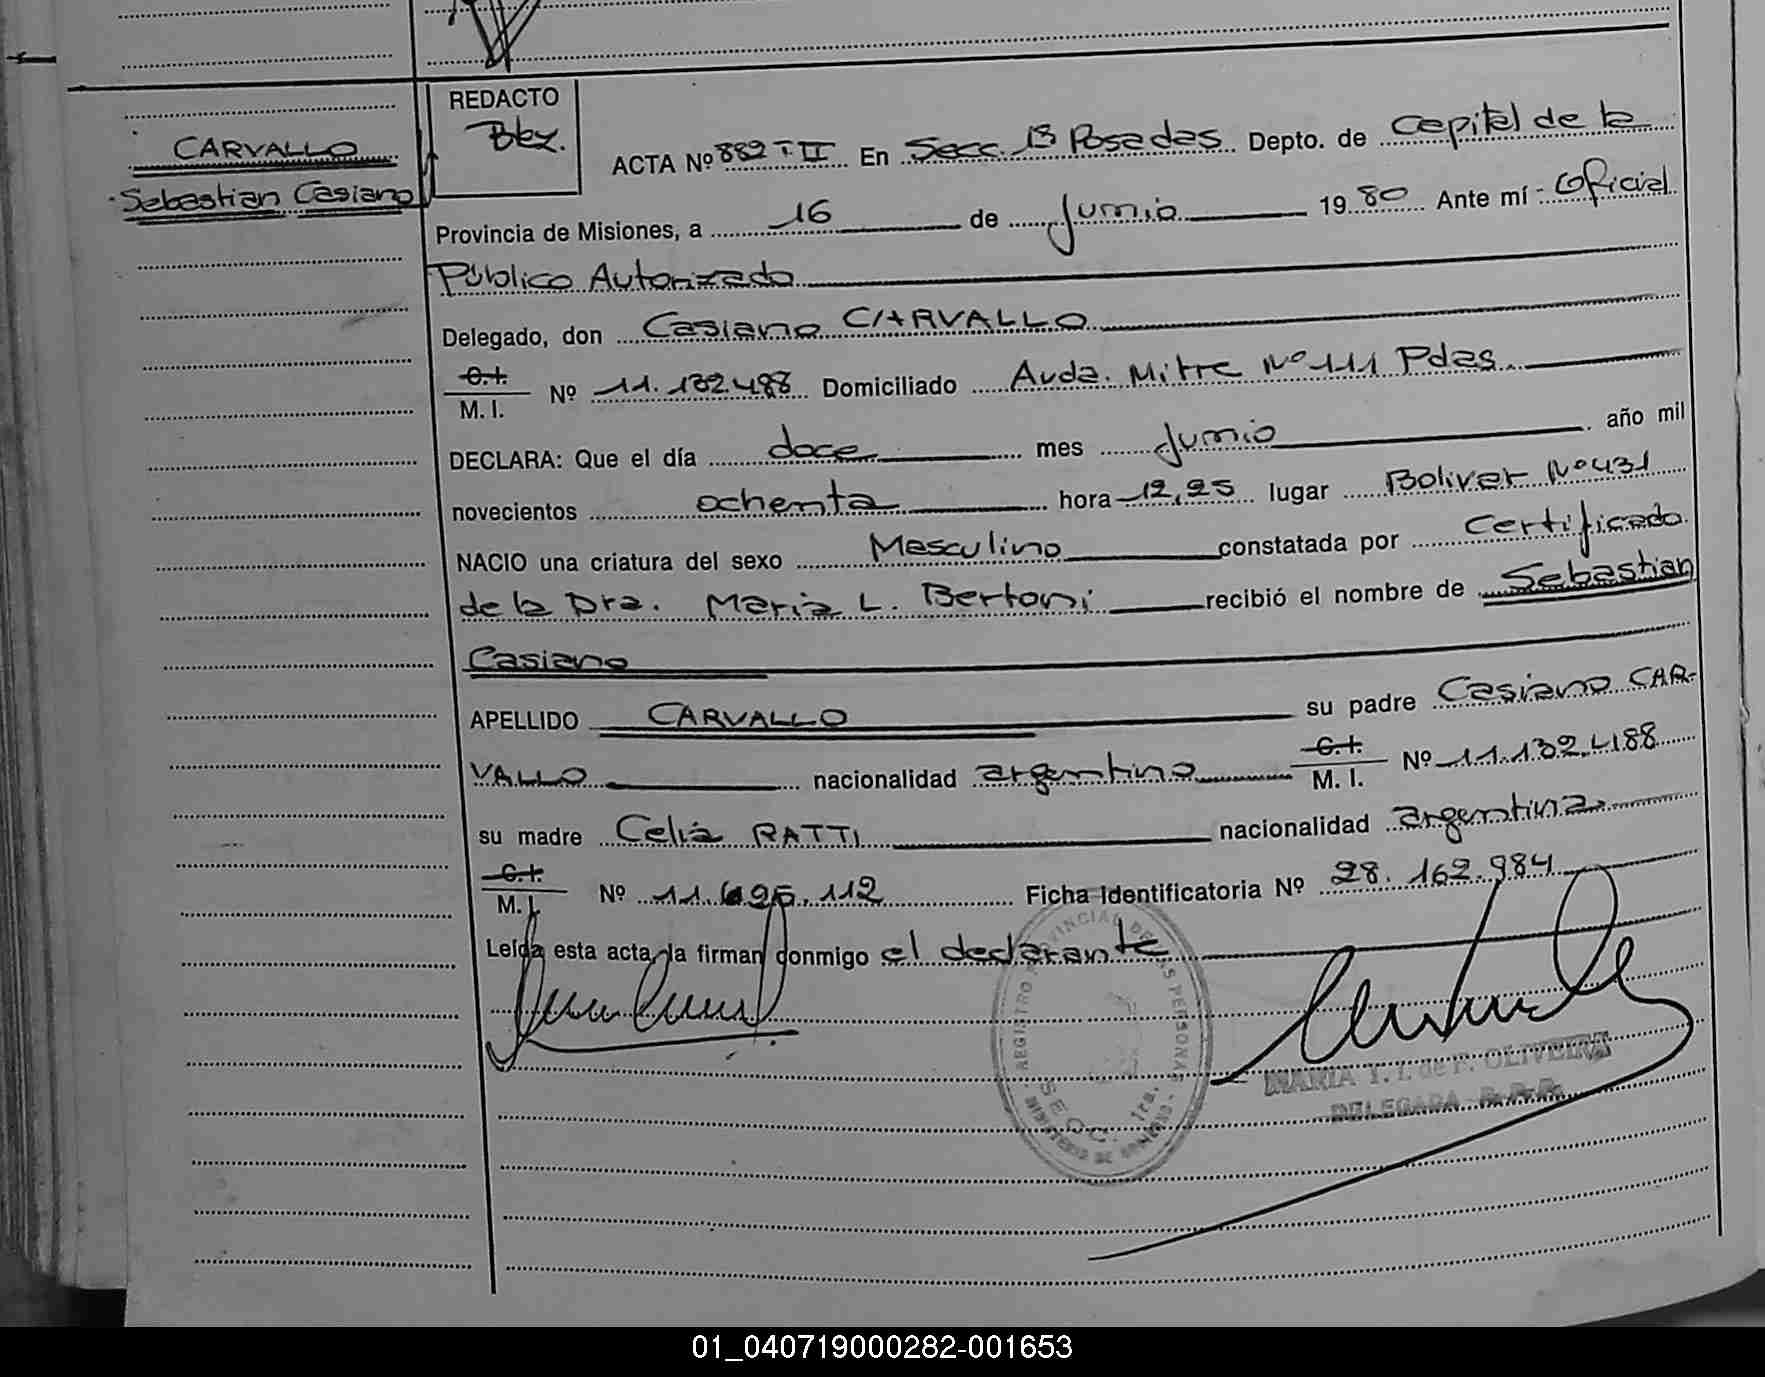 REDACTO
Blex.
CARVALLO
Sebastian Casiano
ACTA Nº 882 T II En Secc. 1ª Posadas Depto. de Capital de la
Provincia de Misiones, a 16 de Junio 1980 Ante mí Oficial
Público Autorizado
Delegado, don Casiano CARVALLO
C.I.
M.I. Nº 11.132.488 Domiciliado Avda. Mitre Nº 111 Pdas
DECLARA: Que el día doce mes Junio año mil
novecientos ochenta hora 12,25 lugar Bolivar Nº 431
NACIO una criatura del sexo Masculino constatada por Certificado
de la Dra. Maria L. Bertoni recibió el nombre de Sebastian
Casiano
APELLIDO CARVALLO su padre Casiano CAR-
VALLO nacionalidad argentino C.I. M.I. Nº 11.132.488
su madre Celia RATTI nacionalidad argentina
C.I.
M.I. Nº 11.695.112 Ficha Identificatoria Nº 28.162.984
Leída esta acta, la firman conmigo el declarante
REGISTRO PROVINCIAL DE LAS PERSONAS
SECC. 1ra.
MINISTERIO DE GOBIERNO
MARIA T. I. de P. OLIVEIRA
DELEGADA
01_040719000282-001653